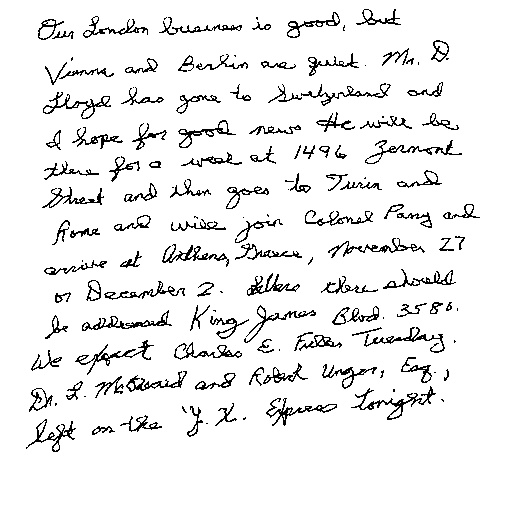 Our London business is good, but
Vienna and Berlin are quiet. Mr. D.
Lloyd has gone to Switzerland and
I hope for good news He will be
there for a week at 1496 Zermont
Street and then goes to Turin and
Rome and will join Colonel Parry and
arrive at Anthens, Greece, November 27
or December 2. Letters there should
be addressed King James Blvd. 3580.
We expect Charles E. Fuller Tuesday.
Dr. L. McQuaid and Robert Unger, Esq.,
left on the "Y. X. Express tonight.